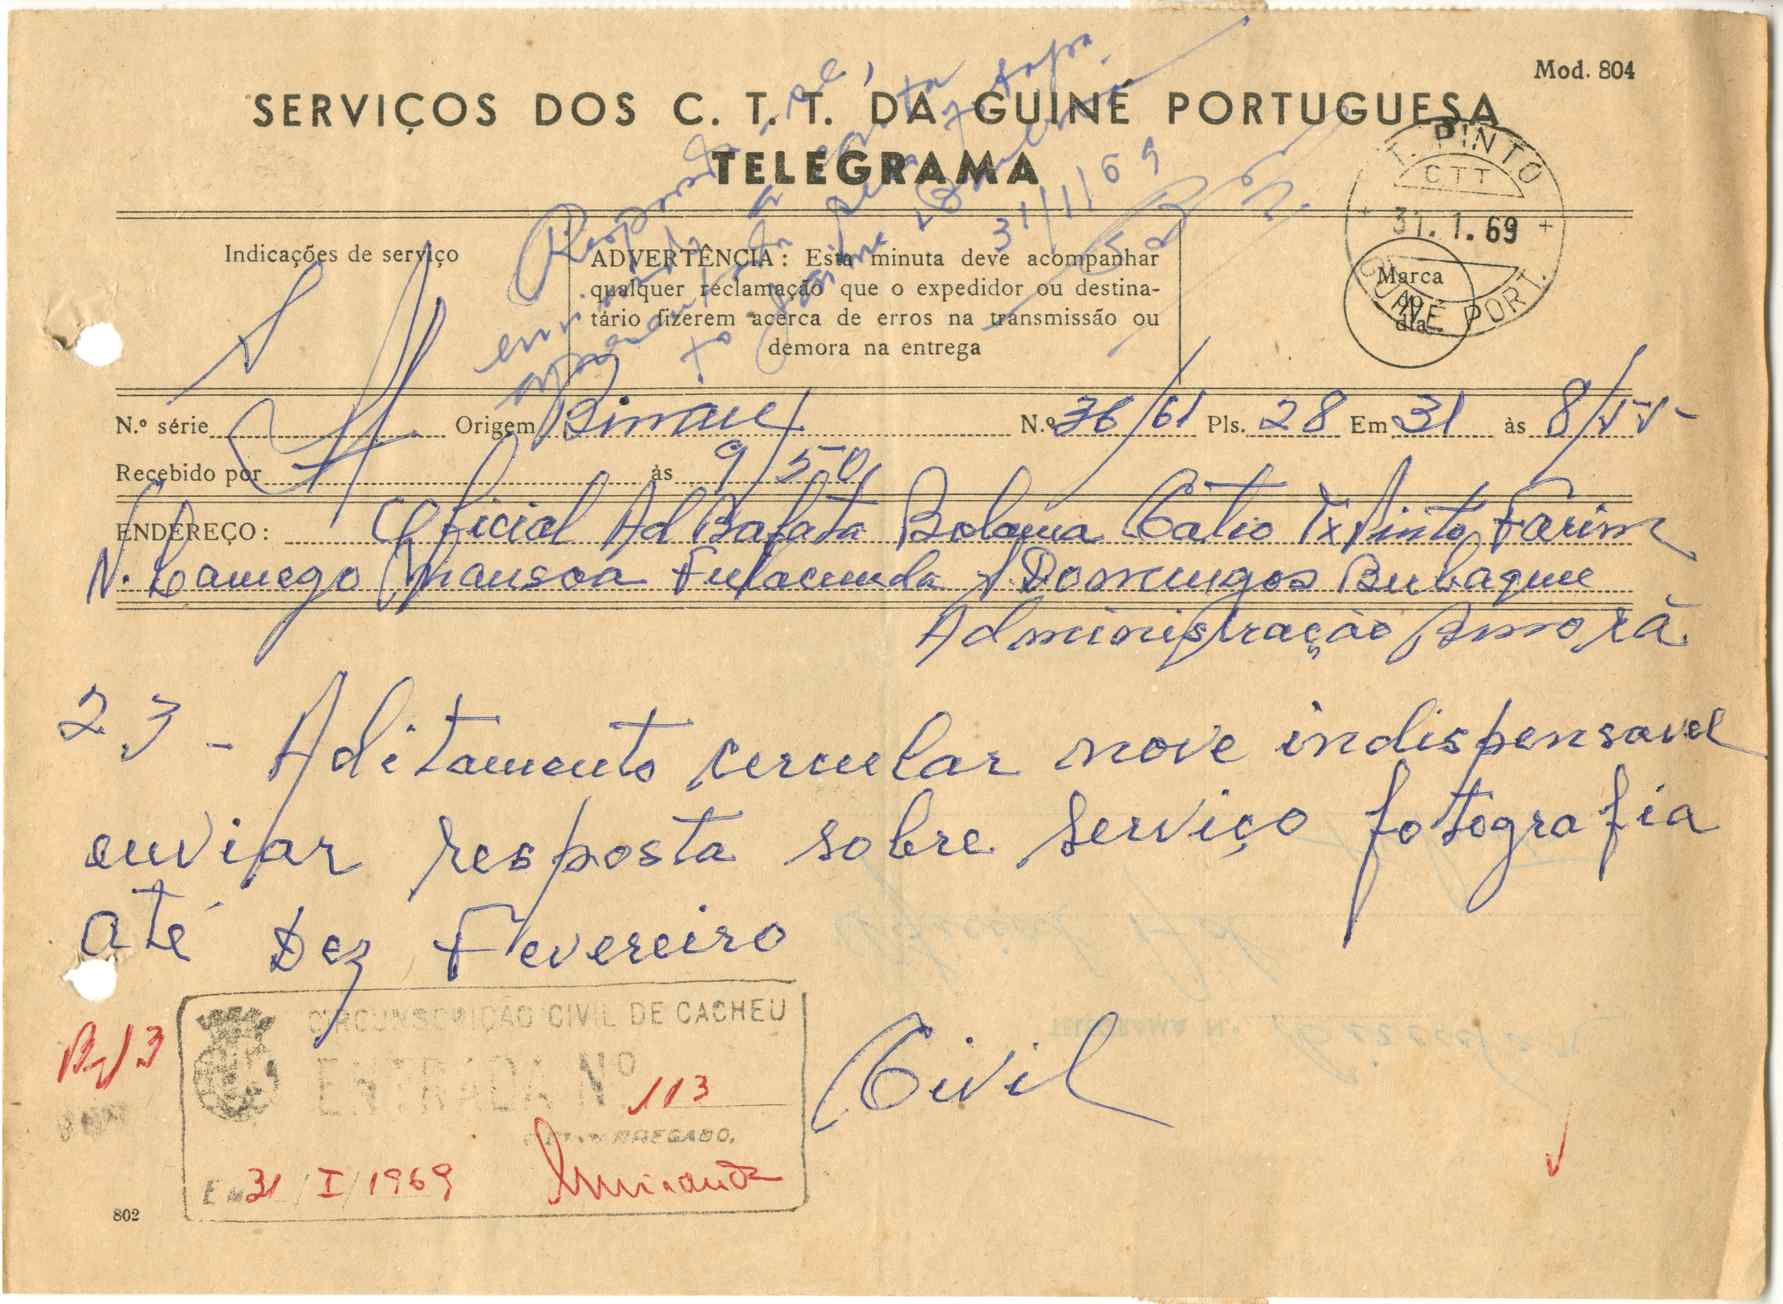 Mod. 804
SERVIÇOS DOS C. T. T. DA GUINÉ PORTUGUESA
TELEGRAMA
T. PINTO
CTT
31.1.69
GUINÉ PORT.
Marca
do
dia
31/1/69
Indicações de serviço
ADVERTÊNCIA: Esta minuta deve acompanhar
qualquer reclamação que o expedidor ou destina-
tário fizerem acerca de erros na transmissão ou
demora na entrega
N.º série Origem Bissau N.º 36/61 Pls. 28 Em 31 às 8/55
Recebido por às 9/50
ENDEREÇO: Oficial Ad Bafata Bolama Catio Tx Pinto Farim
N. Lamego Mansoa Fulacunda S Domingos Bubaque
Administração
23 - Aditamento cercular nove indispensavel
enviar resposta sobre serviço fotografia
até Dez Fevereiro
Civil
B-/3
CIRCUNSCRIÇÃO CIVIL DE CACHEU
ENTRADA Nº 113
Em 31/I/1969
802